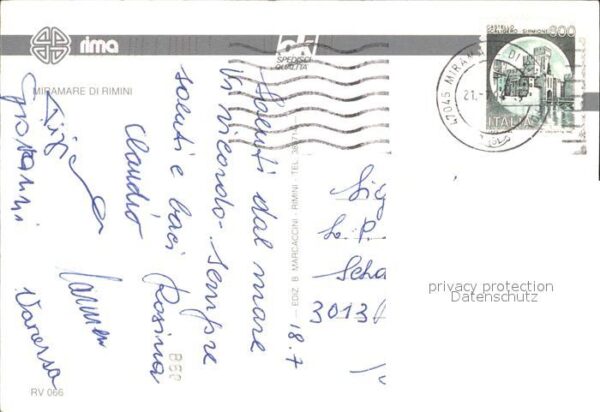 rima
MIRAMARE DI RIMINI
SPEDISCI
QUALITÀ
CASTELLO
SCALIGERO SIRMIONE
800
ITALIA
47045 MIRAMARE DI
21.
Saluti dal mare
Vi ricordo sempre
saluti e baci Rosina
Claudio
Luigi
Giovanni
Carmen
Vanessa
18.7
— EDIZ. B. MARCACCINI - RIMINI - TEL.
Sig
L. P.
Scha
3013
privacy protection
Datenschutz
RV 066